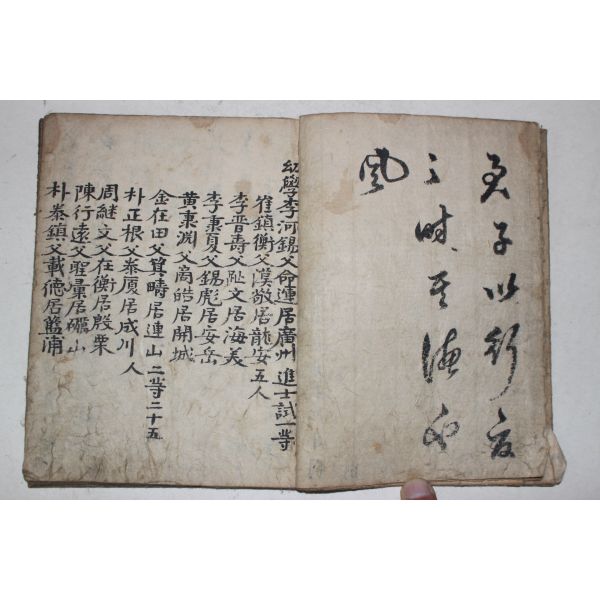 子以行
之時其
風
幼學李河錫父命運居廣州 進士試一等
崔鎮衡父漠敬居龍安 五人
李晋壽父趾文居海美
李秉夏父錫彪居安岳
黄秉淵父离皓居開城
金在田父箕疇居連山 二等二十五
朴正根父泰厦居成川 人
周継文父在衡居殷栗
陳行遠父聖居礪山
朴泰鎮父載德居藍浦